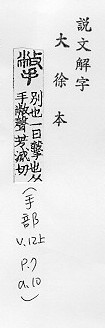 說文解字
大徐本
別也一曰擊也从
手敝聲芳滅切
(手部
V.12上
P.7
a.10)